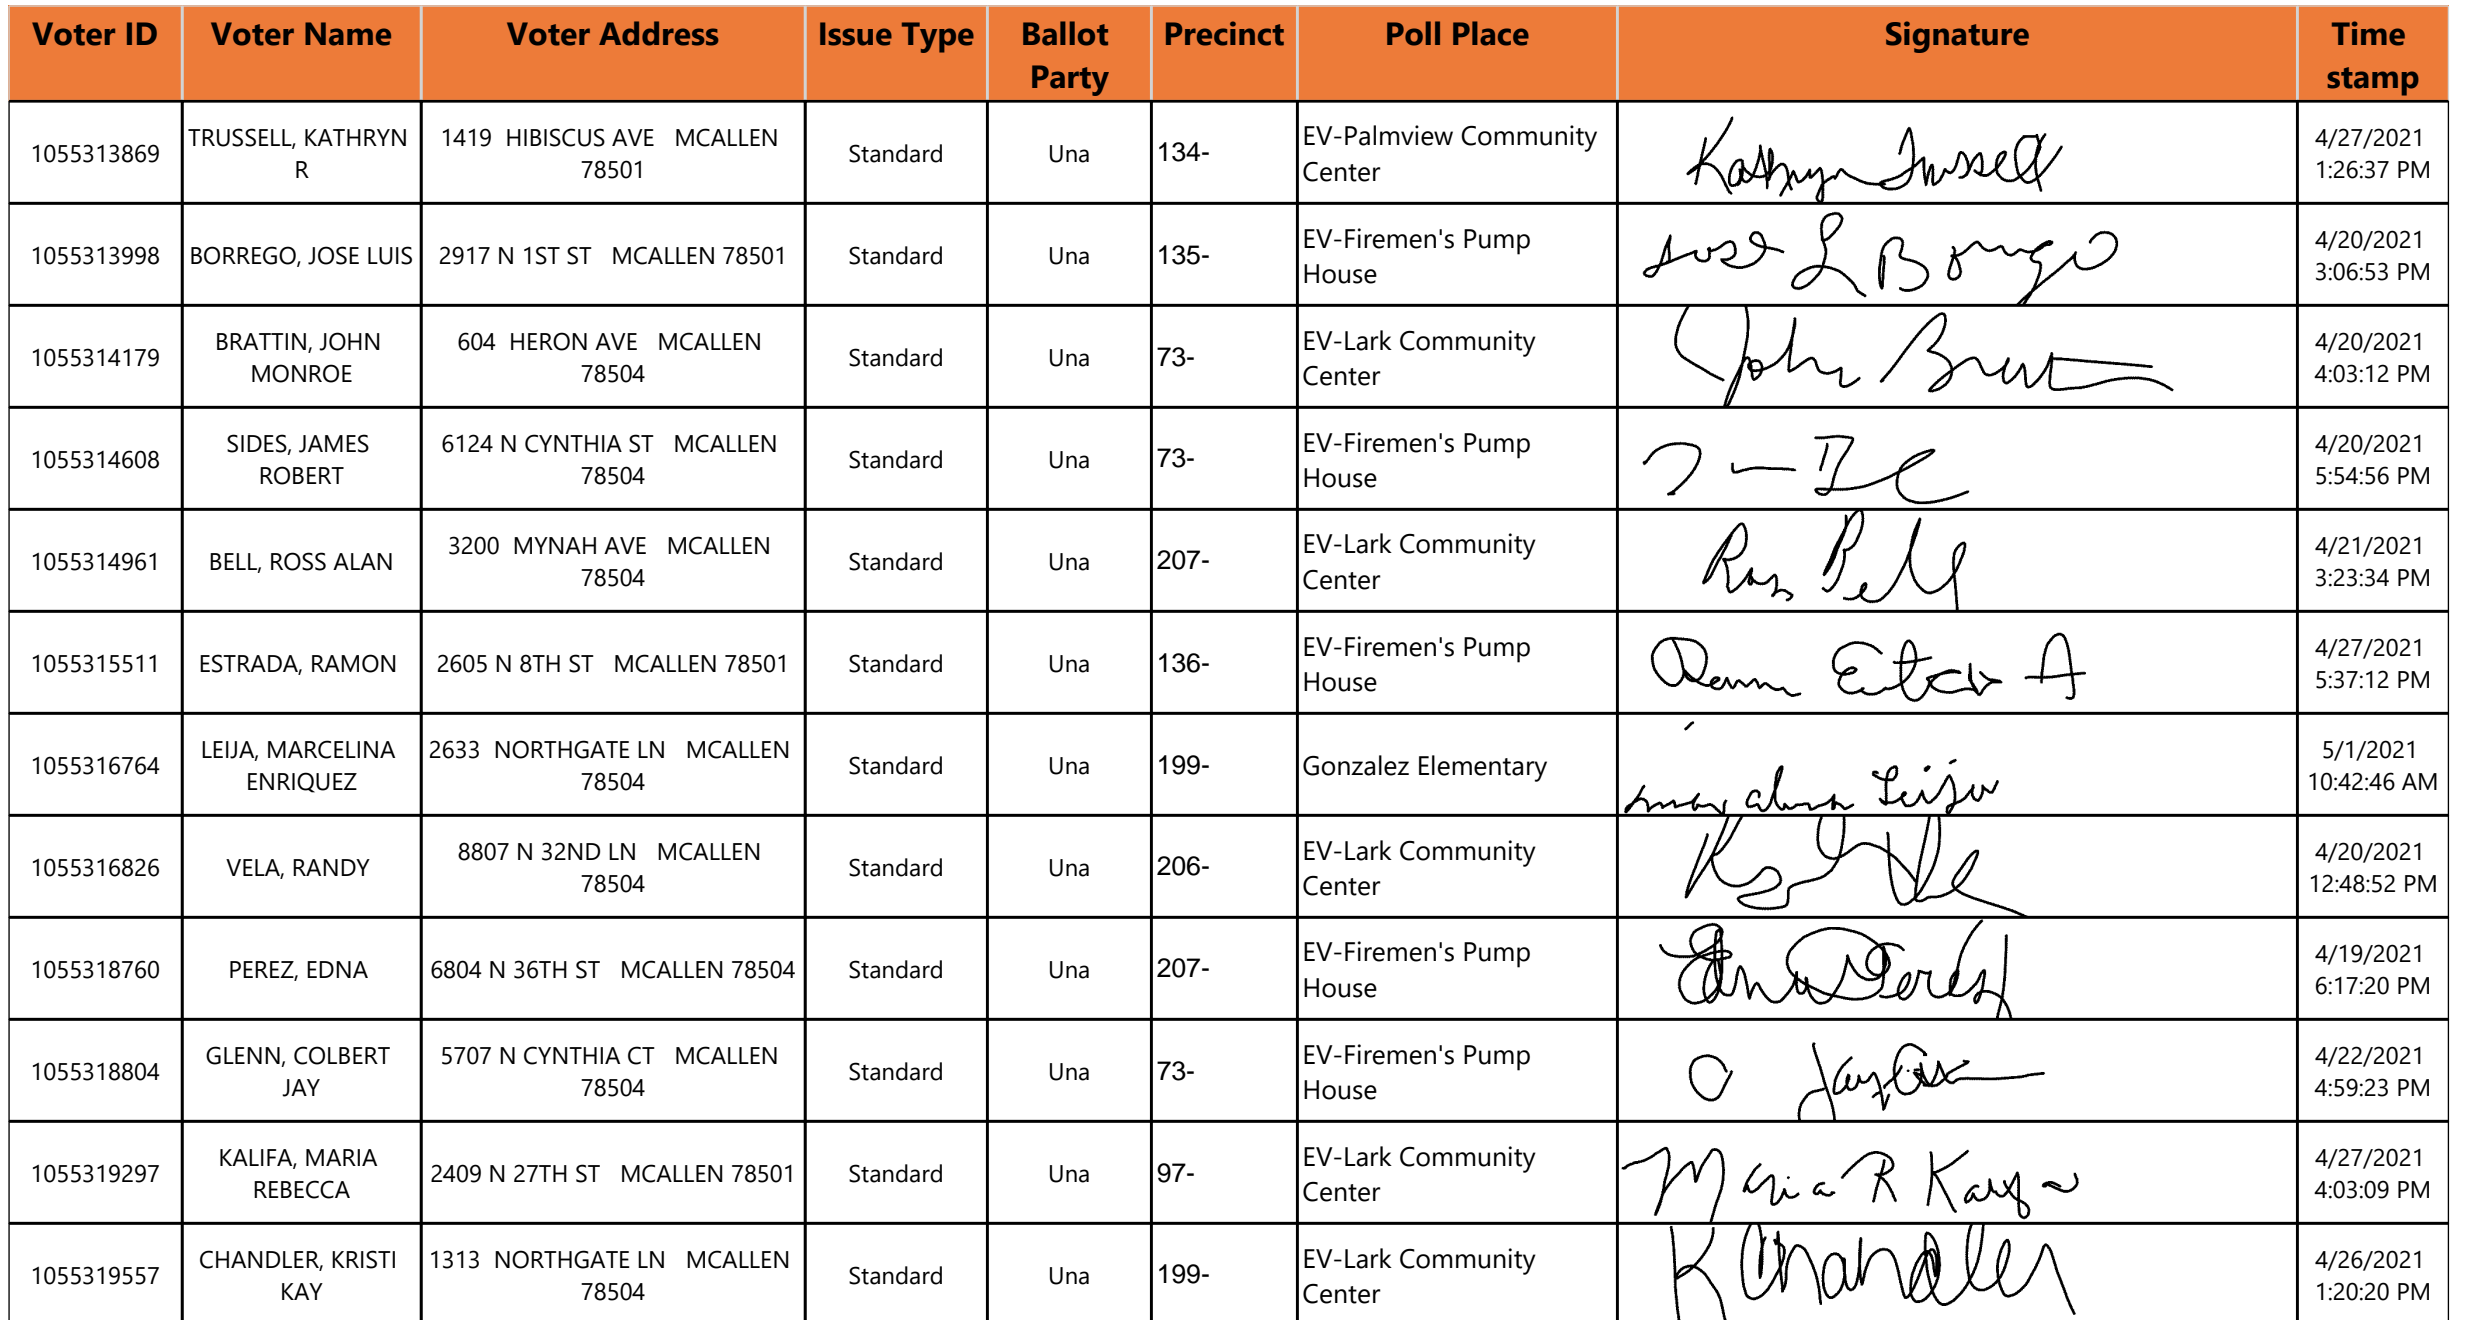 Voter ID Voter Name Voter Address Issue Type Ballot Party Precinct Poll Place Signature Time stamp
1055313869 TRUSSELL, KATHRYN R 1419 HIBISCUS AVE MCALLEN 78501 Standard Una 134- EV-Palmview Community Center Kathryn Trussell 4/27/2021 1:26:37 PM
1055313998 BORREGO, JOSE LUIS 2917 N 1ST ST MCALLEN 78501 Standard Una 135- EV-Firemen's Pump House Jose L Borrego 4/20/2021 3:06:53 PM
1055314179 BRATTIN, JOHN MONROE 604 HERON AVE MCALLEN 78504 Standard Una 73- EV-Lark Community Center John 4/20/2021 4:03:12 PM
1055314608 SIDES, JAMES ROBERT 6124 N CYNTHIA ST MCALLEN 78504 Standard Una 73- EV-Firemen's Pump House 4/20/2021 5:54:56 PM
1055314961 BELL, ROSS ALAN 3200 MYNAH AVE MCALLEN 78504 Standard Una 207- EV-Lark Community Center Ross Bell 4/21/2021 3:23:34 PM
1055315511 ESTRADA, RAMON 2605 N 8TH ST MCALLEN 78501 Standard Una 136- EV-Firemen's Pump House A 4/27/2021 5:37:12 PM
1055316764 LEIJA, MARCELINA ENRIQUEZ 2633 NORTHGATE LN MCALLEN 78504 Standard Una 199- Gonzalez Elementary Leija 5/1/2021 10:42:46 AM
1055316826 VELA, RANDY 8807 N 32ND LN MCALLEN 78504 Standard Una 206- EV-Lark Community Center 4/20/2021 12:48:52 PM
1055318760 PEREZ, EDNA 6804 N 36TH ST MCALLEN 78504 Standard Una 207- EV-Firemen's Pump House Edna Perez 4/19/2021 6:17:20 PM
1055318804 GLENN, COLBERT JAY 5707 N CYNTHIA CT MCALLEN 78504 Standard Una 73- EV-Firemen's Pump House Jay 4/22/2021 4:59:23 PM
1055319297 KALIFA, MARIA REBECCA 2409 N 27TH ST MCALLEN 78501 Standard Una 97- EV-Lark Community Center Maria R 4/27/2021 4:03:09 PM
1055319557 CHANDLER, KRISTI KAY 1313 NORTHGATE LN MCALLEN 78504 Standard Una 199- EV-Lark Community Center K Chandler 4/26/2021 1:20:20 PM